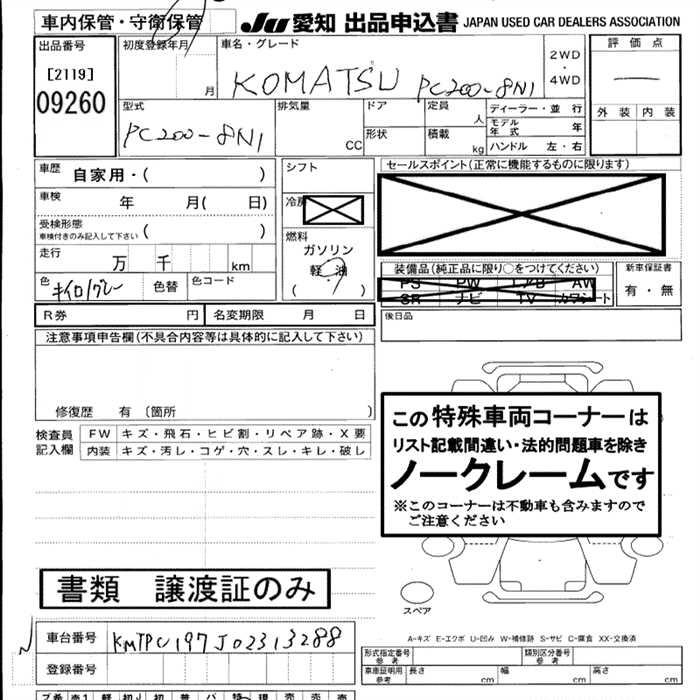 車内保管・守衛保管
JU 愛知 出品申込書 JAPAN USED CAR DEALERS ASSOCIATION
出品番号
[2119]
09260
初度登録年月
月
車名・グレード
KOMATSU PC200-8N1
2WD
・
4WD
評価点
外装 内装
型式
PC200-8N1
排気量
CC
ドア
形状
定員
人
積載
kg
ディーラー・並 行
モデル年式 年
ハンドル 左・右
車歴
自家用・( )
車検 年 月( 日)
受検形態
車検付きのみ記入して下さい ( )
走行 万 千 km
色 キイロ/グレー 色替 色コード
シフト
冷房
燃料
ガソリン
軽 油
( )
セールスポイント(正常に機能するものに限ります)
装備品(純正品に限り○をつけてください)
PS PW エアB AW
SR ナビ TV カワシート
新車保証書
有・無
R券 円 名変期限 月 日
後日品
注意事項申告欄(不具合内容等は具体的に記入して下さい)
修復歴 有 〔箇所 〕
検査員記入欄
FW キズ・飛石・ヒビ割・リペア跡・X要
内装 キズ・汚レ・コゲ・穴・スレ・キレ・破レ
この特殊車両コーナーは
リスト記載間違い・法的問題車を除き
ノークレームです
※このコーナーは不動車も含みますので
ご注意ください
書類 譲渡証のみ
スペア
A-キズ E-エクボ U-凹み W-補修跡 S-サビ C-腐食 XX-交換済
車台番号 KMTPC197J02313288
登録番号
形式指定番号
参考
類別区分番号
参考
車庫証明用
参考
長さ cm 幅 cm 高さ cm